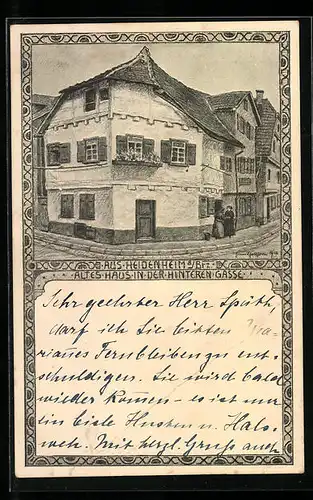 AUS HEIDENHEIM a/Brz.
ALTES HAUS IN DER HINTEREN GASSE
Sehr geehrter Herr Späth,
darf ich Sie bitten Ma-
rianes Fernbleiben zu ent-
schuldigen. Sie wird bald
wieder kommen – es ist nur
ein bisle Husten u. Hals-
weh. Mit herzl. Gruss auch